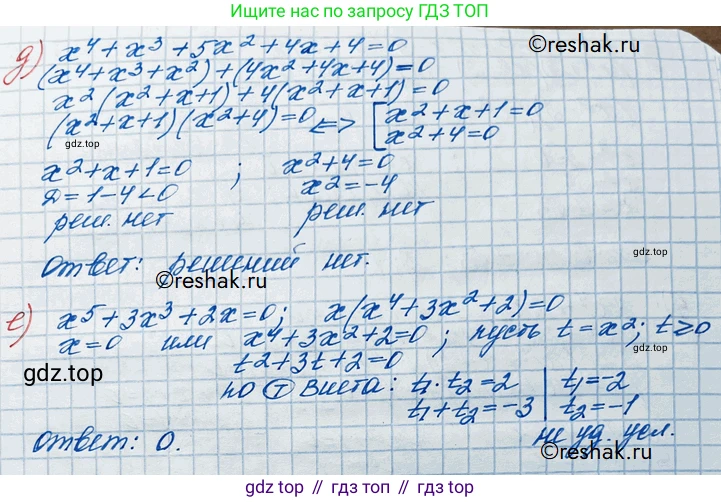 Ищите нас по запросу ГДЗ ТОП
д) x⁴ + x³ + 5x² + 4x + 4 = 0
©reshak.ru
(x⁴ + x³ + x²) + (4x² + 4x + 4) = 0
x²(x² + x + 1) + 4(x² + x + 1) = 0
(x² + x + 1)(x² + 4) = 0 <=> [ x² + x + 1 = 0
x² + 4 = 0
gdz.top
x² + x + 1 = 0 ; x² + 4 = 0
Д = 1 - 4 < 0 x² = -4
реш. нет реш. нет
gdz.top
Ответ: решений нет.
©reshak.ru
е) x⁵ + 3x³ + 2x = 0; x(x⁴ + 3x² + 2) = 0
x = 0 или x⁴ + 3x² + 2 = 0; пусть t = x²; t ≥ 0
t² + 3t + 2 = 0
gdz.top
по Т Виета: t₁ · t₂ = 2 | t₁ = -2
t₁ + t₂ = -3 | t₂ = -1
не уд. усл.
Ответ: 0.
©reshak.ru
gdz.top // гдз.топ // gdz.top // гдз.топ